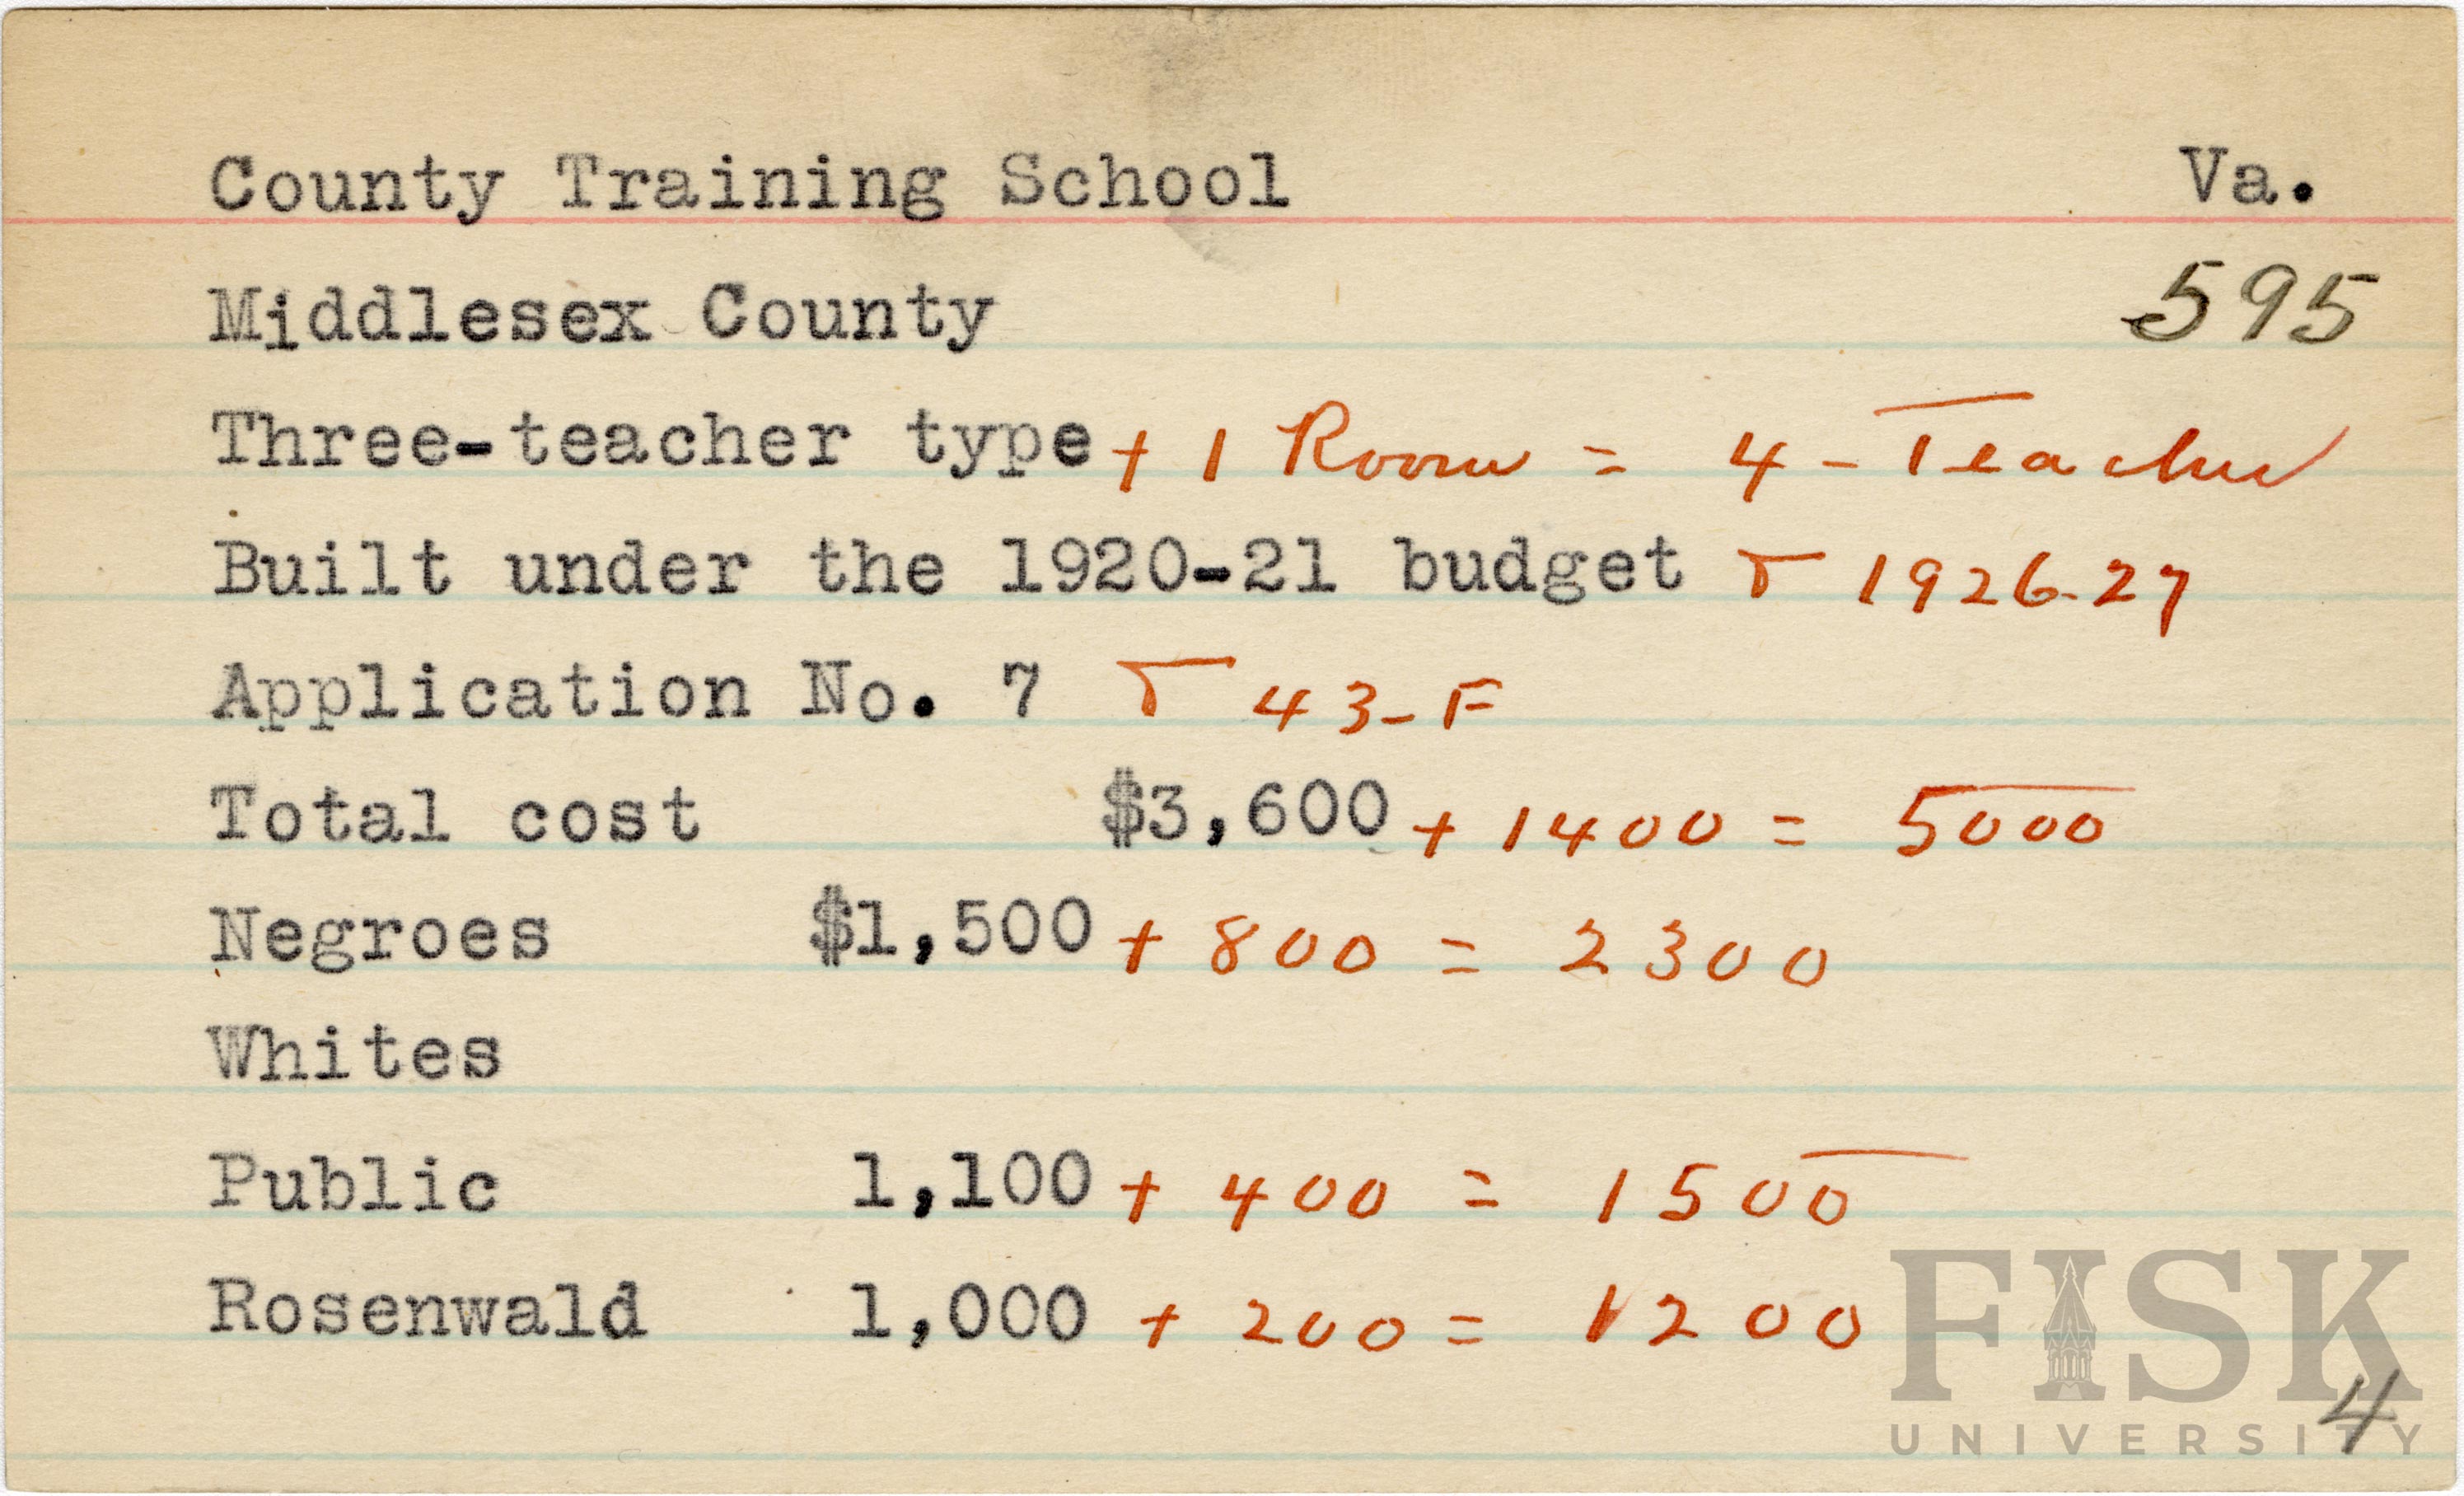 County Training School Va.
Middlesex County 595
Three-teacher type + 1 Room = 4-Teacher
Built under the 1920-21 budget & 1926-27
Application No. 7 & 43-F
Total cost $3,600 + 1400 = 5000
Negroes $1,500 + 800 = 2300
Whites
Public 1,100 + 400 = 1500
Rosenwald 1,000 + 200 = 1200
FISK
UNIVERSITY
4